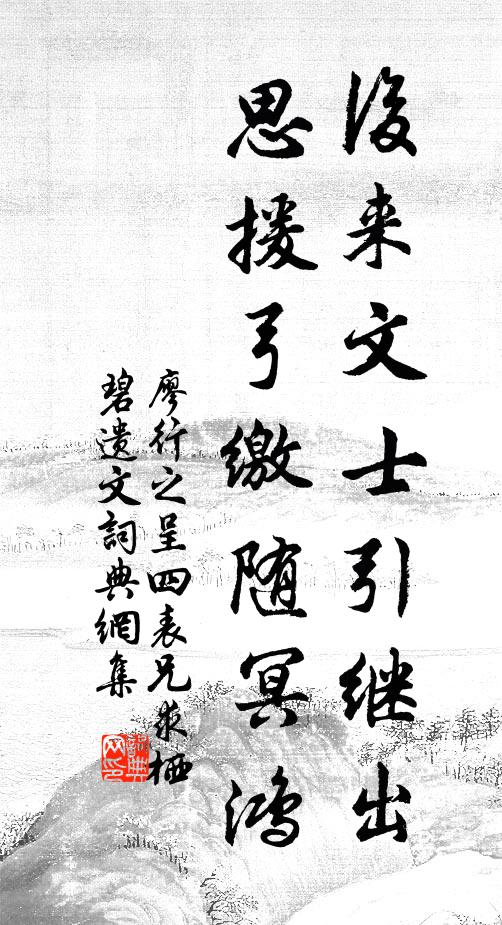 後来文士引继出
思援弓缴随冥鸿
廖行之呈四表兄求栖
碧遗文詞典網集